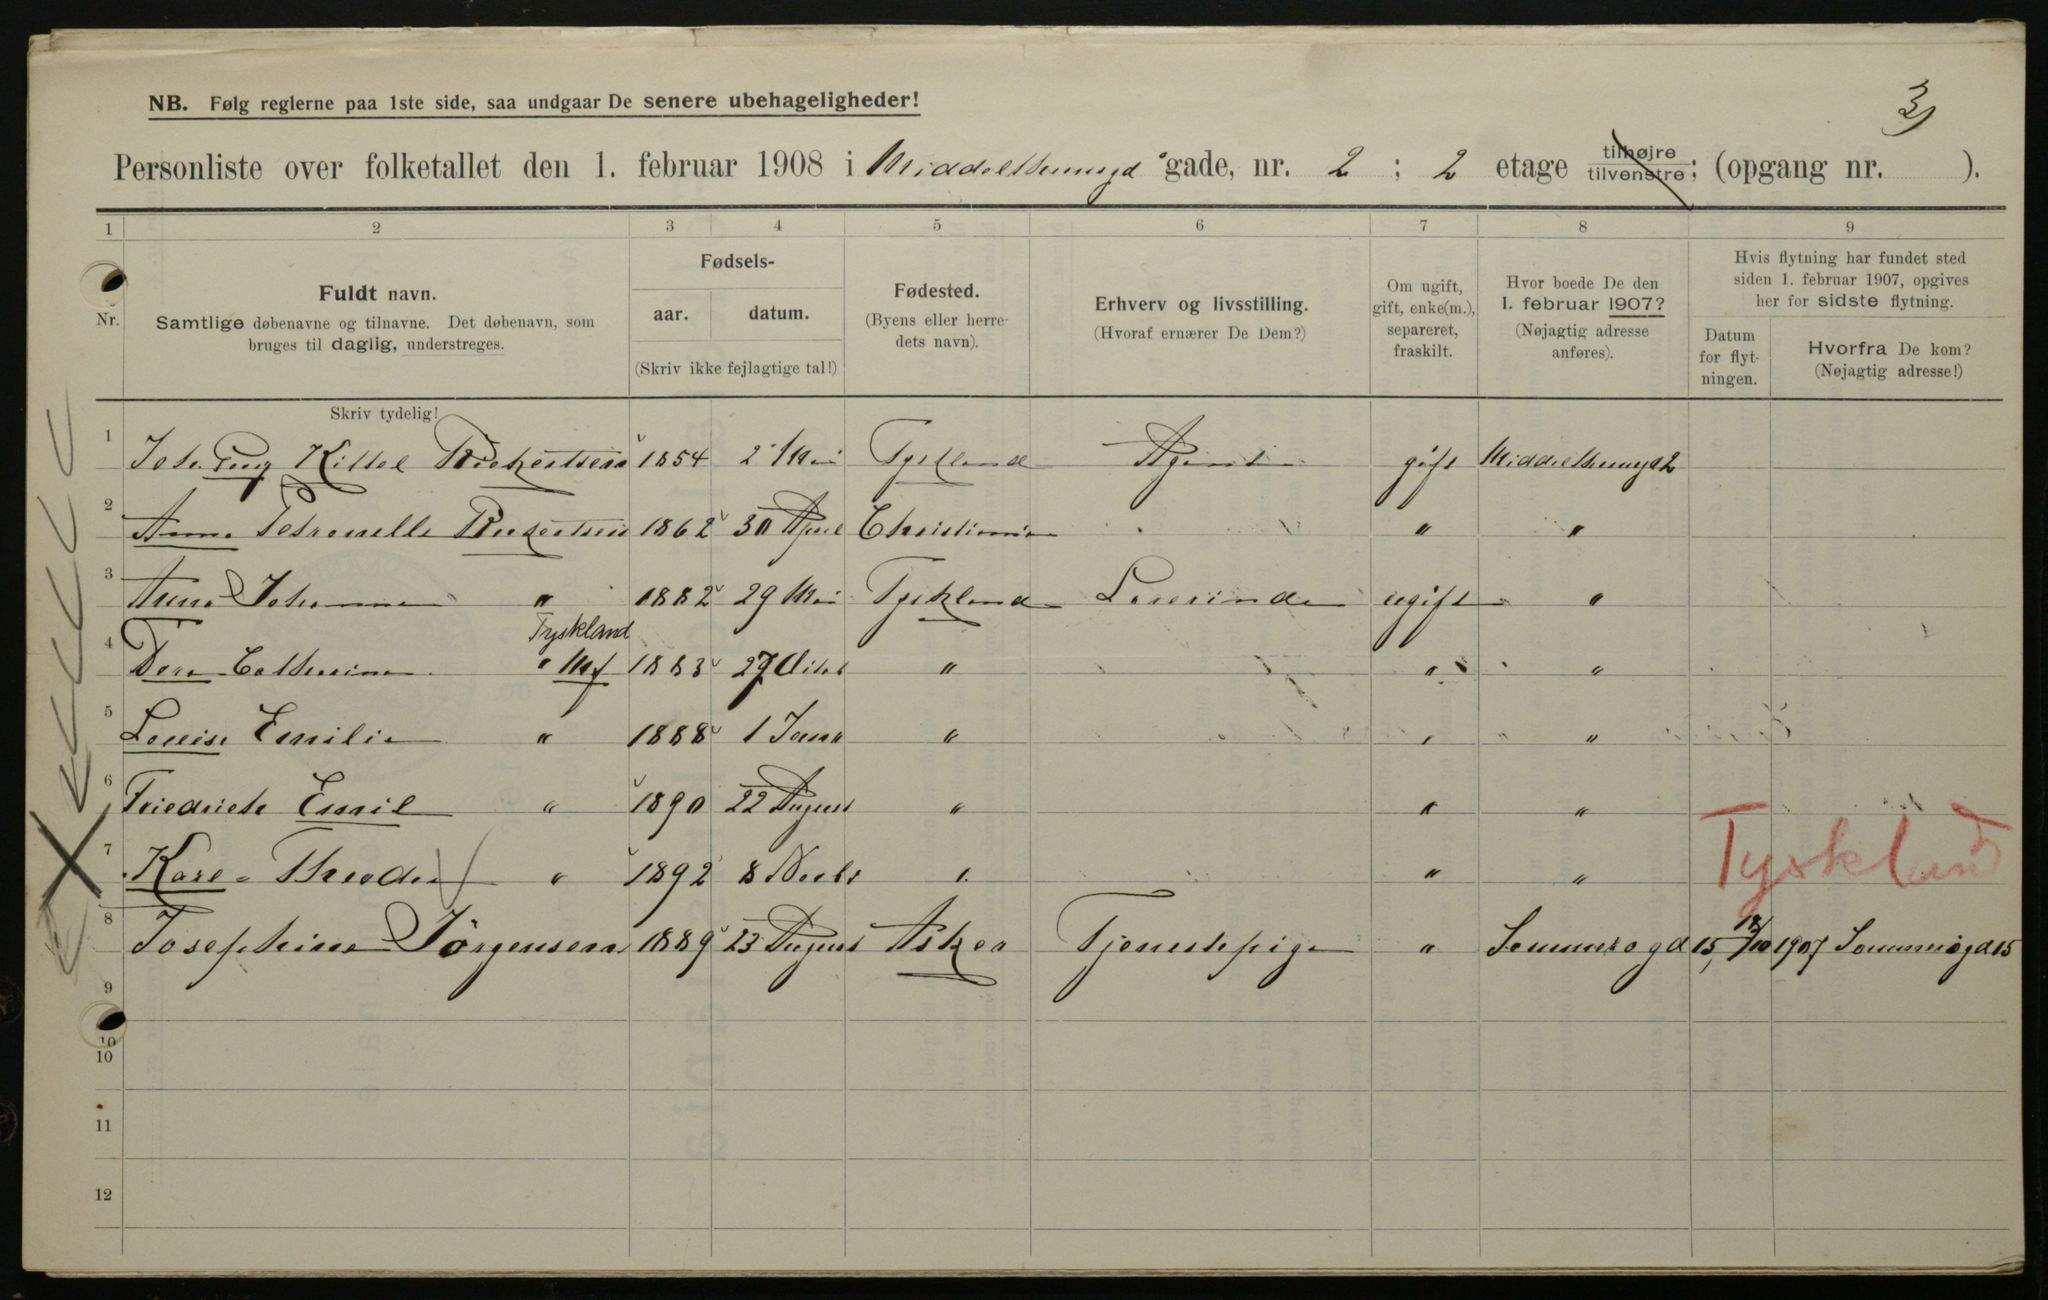 3
NB. Følg reglerne paa 1ste side, saa undgaar De senere ubehageligheder!
Personliste over folketallet den 1. februar 1908 i Middelthunsgd gade, nr. 2 ; 2 etage tilhøjre tilvenstre; (opgang nr. ).
1 2 3 4 5 6 7 8 9
Nr.
Fuldt navn.
Samtlige døbenavne og tilnavne. Det døbenavn, som
bruges til daglig, understreges.
Skriv tydelig!
Fødsels-
aar. datum.
(Skriv ikke fejlagtige tal!)
Fødested.
(Byens eller herre-
dets navn).
Erhverv og livsstilling.
(Hvoraf ernærer De Dem?)
Om ugift,
gift, enke(m.),
separeret,
fraskilt.
Hvor boede De den
1. februar 1907?
(Nøjagtig adresse
anføres).
Hvis flytning har fundet sted
siden 1. februar 1907, opgives
her for sidste flytning.
Datum
for flyt-
ningen.
Hvorfra De kom?
(Nøjagtig adresse!)
1 Kittel 1854 2 Mai Tyskland Agent gift Middelthunsgd 2
2 Anna Petronelle 1862 30 April Christiania " "
3 Anna Johanne " 1882 29 Mai Tyskland Lærerinde ugift "
Tyskland
4 Dora Catherine " 1883 27 " " "
5 Louise Emilie " 1888 1 Janu " " "
6 Friedrich Emil " 1890 22 August " " "
7 Karl Theodor " 1892 8 " " "
Tyskland
8 Josephine Jörgensen 1889 23 August Asker Tjenestepige " Sommerogd 15, 18/10 1907 Sommerogd 15
9
10
10
11
12